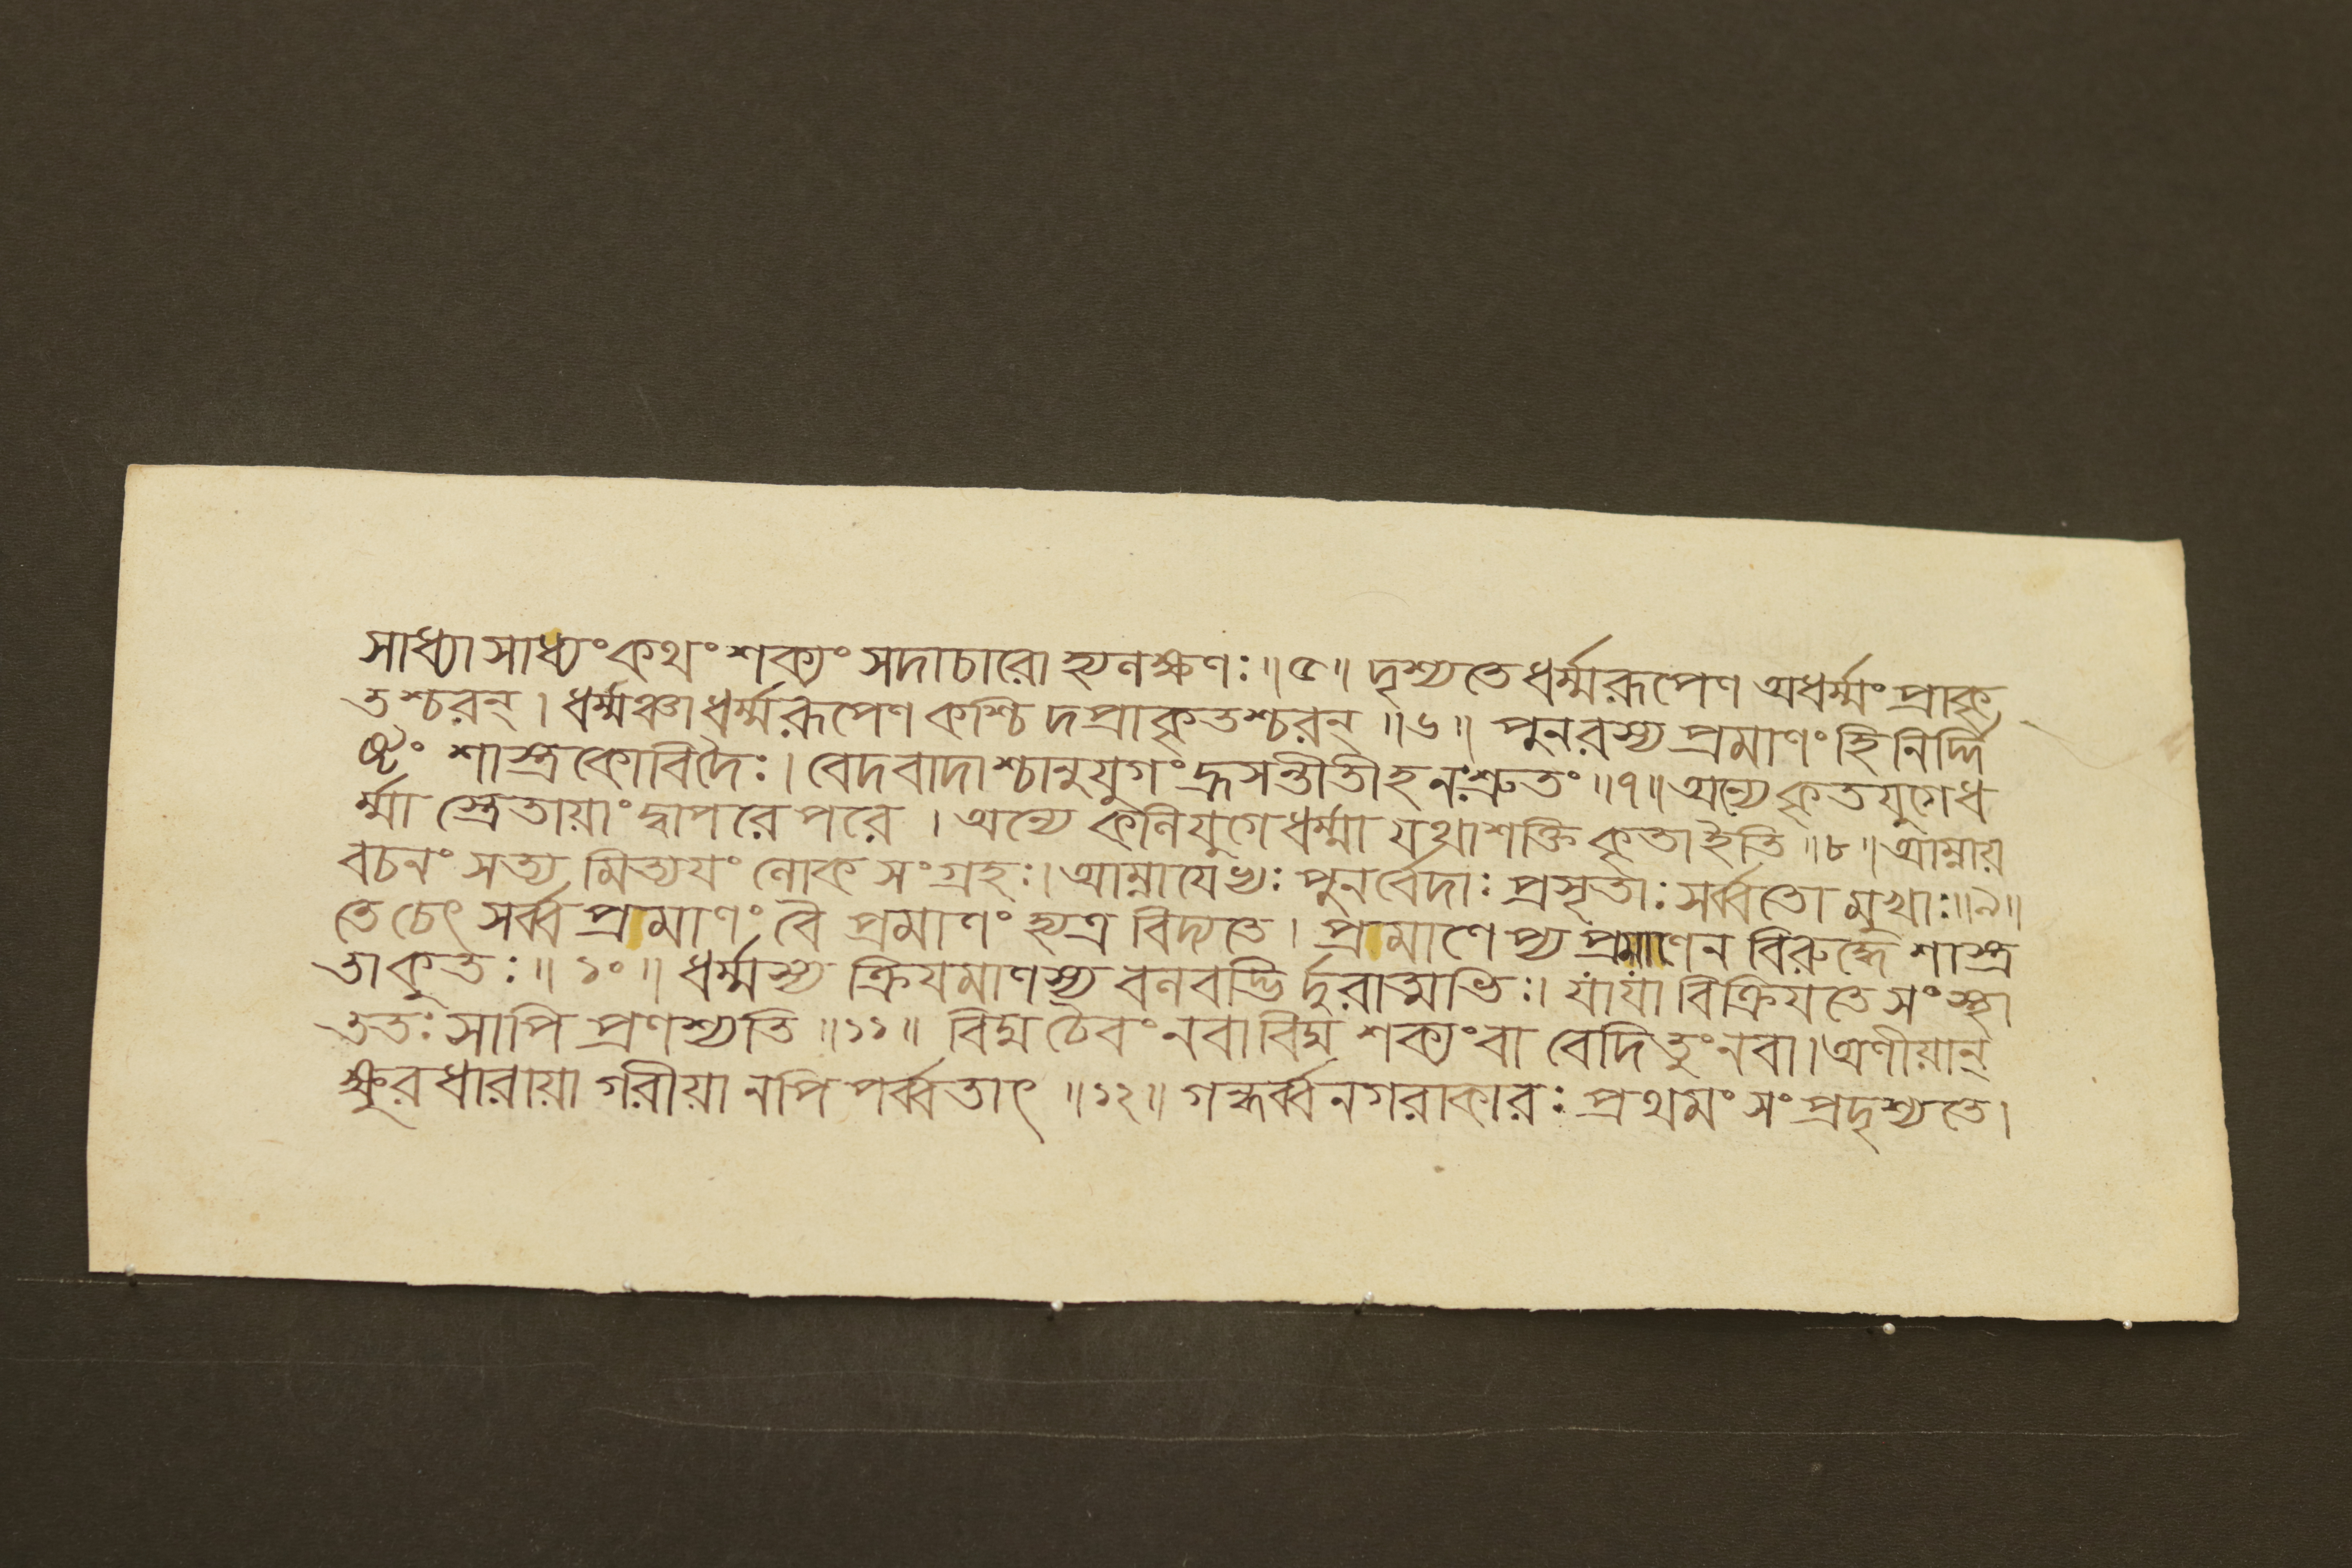 সাধ্যা সাধ্যং কথং শক্যং সদাচারো হ্যলক্ষণঃ ॥ ৫ ॥ দৃশ্যতে ধর্ম্মরূপেণ অধর্ম্মং প্রাকৃ
তশ্চরন্ । ধর্ম্মঞ্চাধর্ম্মরূপেণ কশ্চি দপ্রাকৃতশ্চরন্ ॥ ৬ ॥ পুনরস্য প্রমাণং হি নির্দ্দি
ষ্টং শাস্ত্রকোবিদৈঃ । বেদবাদাশ্চানুযুগং হ্রসন্তীতীহ নঃ শ্রুতং ॥ ৭ ॥ অন্যে কৃতযুগে ধ
র্ম্মা স্ত্রেতায়াং দ্বাপরে পরে । অন্যে কলিযুগে ধর্ম্মা যথাশক্তি কৃতা ইতি ॥ ৮ ॥ আম্নায়
বচনং সত্য মিত্যযং লোক সংগ্রহঃ । আম্নাযেভ্যঃ পুনর্বেদাঃ প্রসৃতাঃ সর্ব্বতো মুখাঃ ॥ ৯ ॥
তে চেৎ সর্ব্ব প্রমাণং বৈ প্রমাণং হ্যত্র বিদ্যতে । প্রমাণেপ্য প্রমাণেন বিরুদ্ধে শাস্ত্র
তা কুতঃ ॥ ১০ ॥ ধর্ম্মস্য ক্রিযমাণস্য বলবদ্ভি র্দুরাত্মভিঃ । যা যা বিক্রিযতে সংস্থা
ততঃ সাপি প্রণশ্যতি ॥ ১১ ॥ বিদ্ম চৈবং নবা বিদ্ম শক্যং বা বেদিতুং নবা । অণীয়ান্
ক্ষুরধারায়া গরীয়া নপি পর্ব্বতাৎ ॥ ১২ ॥ গন্ধর্ব্বনগরাকারঃ প্রথমং সংপ্রদৃশ্যতে ।